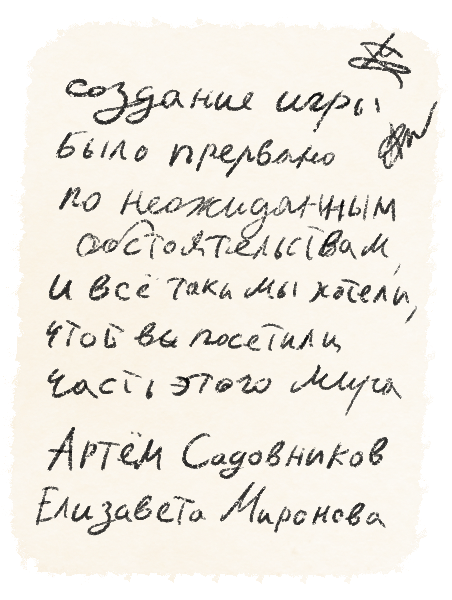 создание игры
было прервано
по неожиданным
обстоятельствам,
и всё таки мы хотели,
чтоб вы посетили
часть этого мира
Артём Садовников
Елизавета Миронова